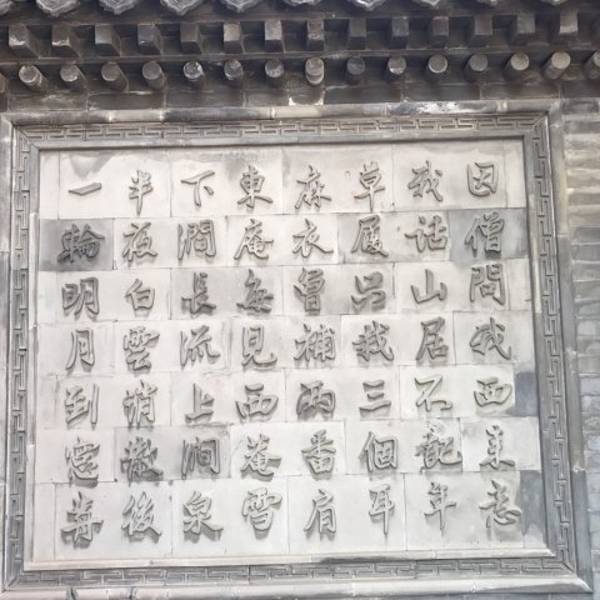 因僧問我西來意
我話山居不記年
草履只栽三個耳
麻衣曾補兩番肩
東庵每見西菴雪
下澗長流上澗泉
半夜白雲消散後
一輪明月到窓前